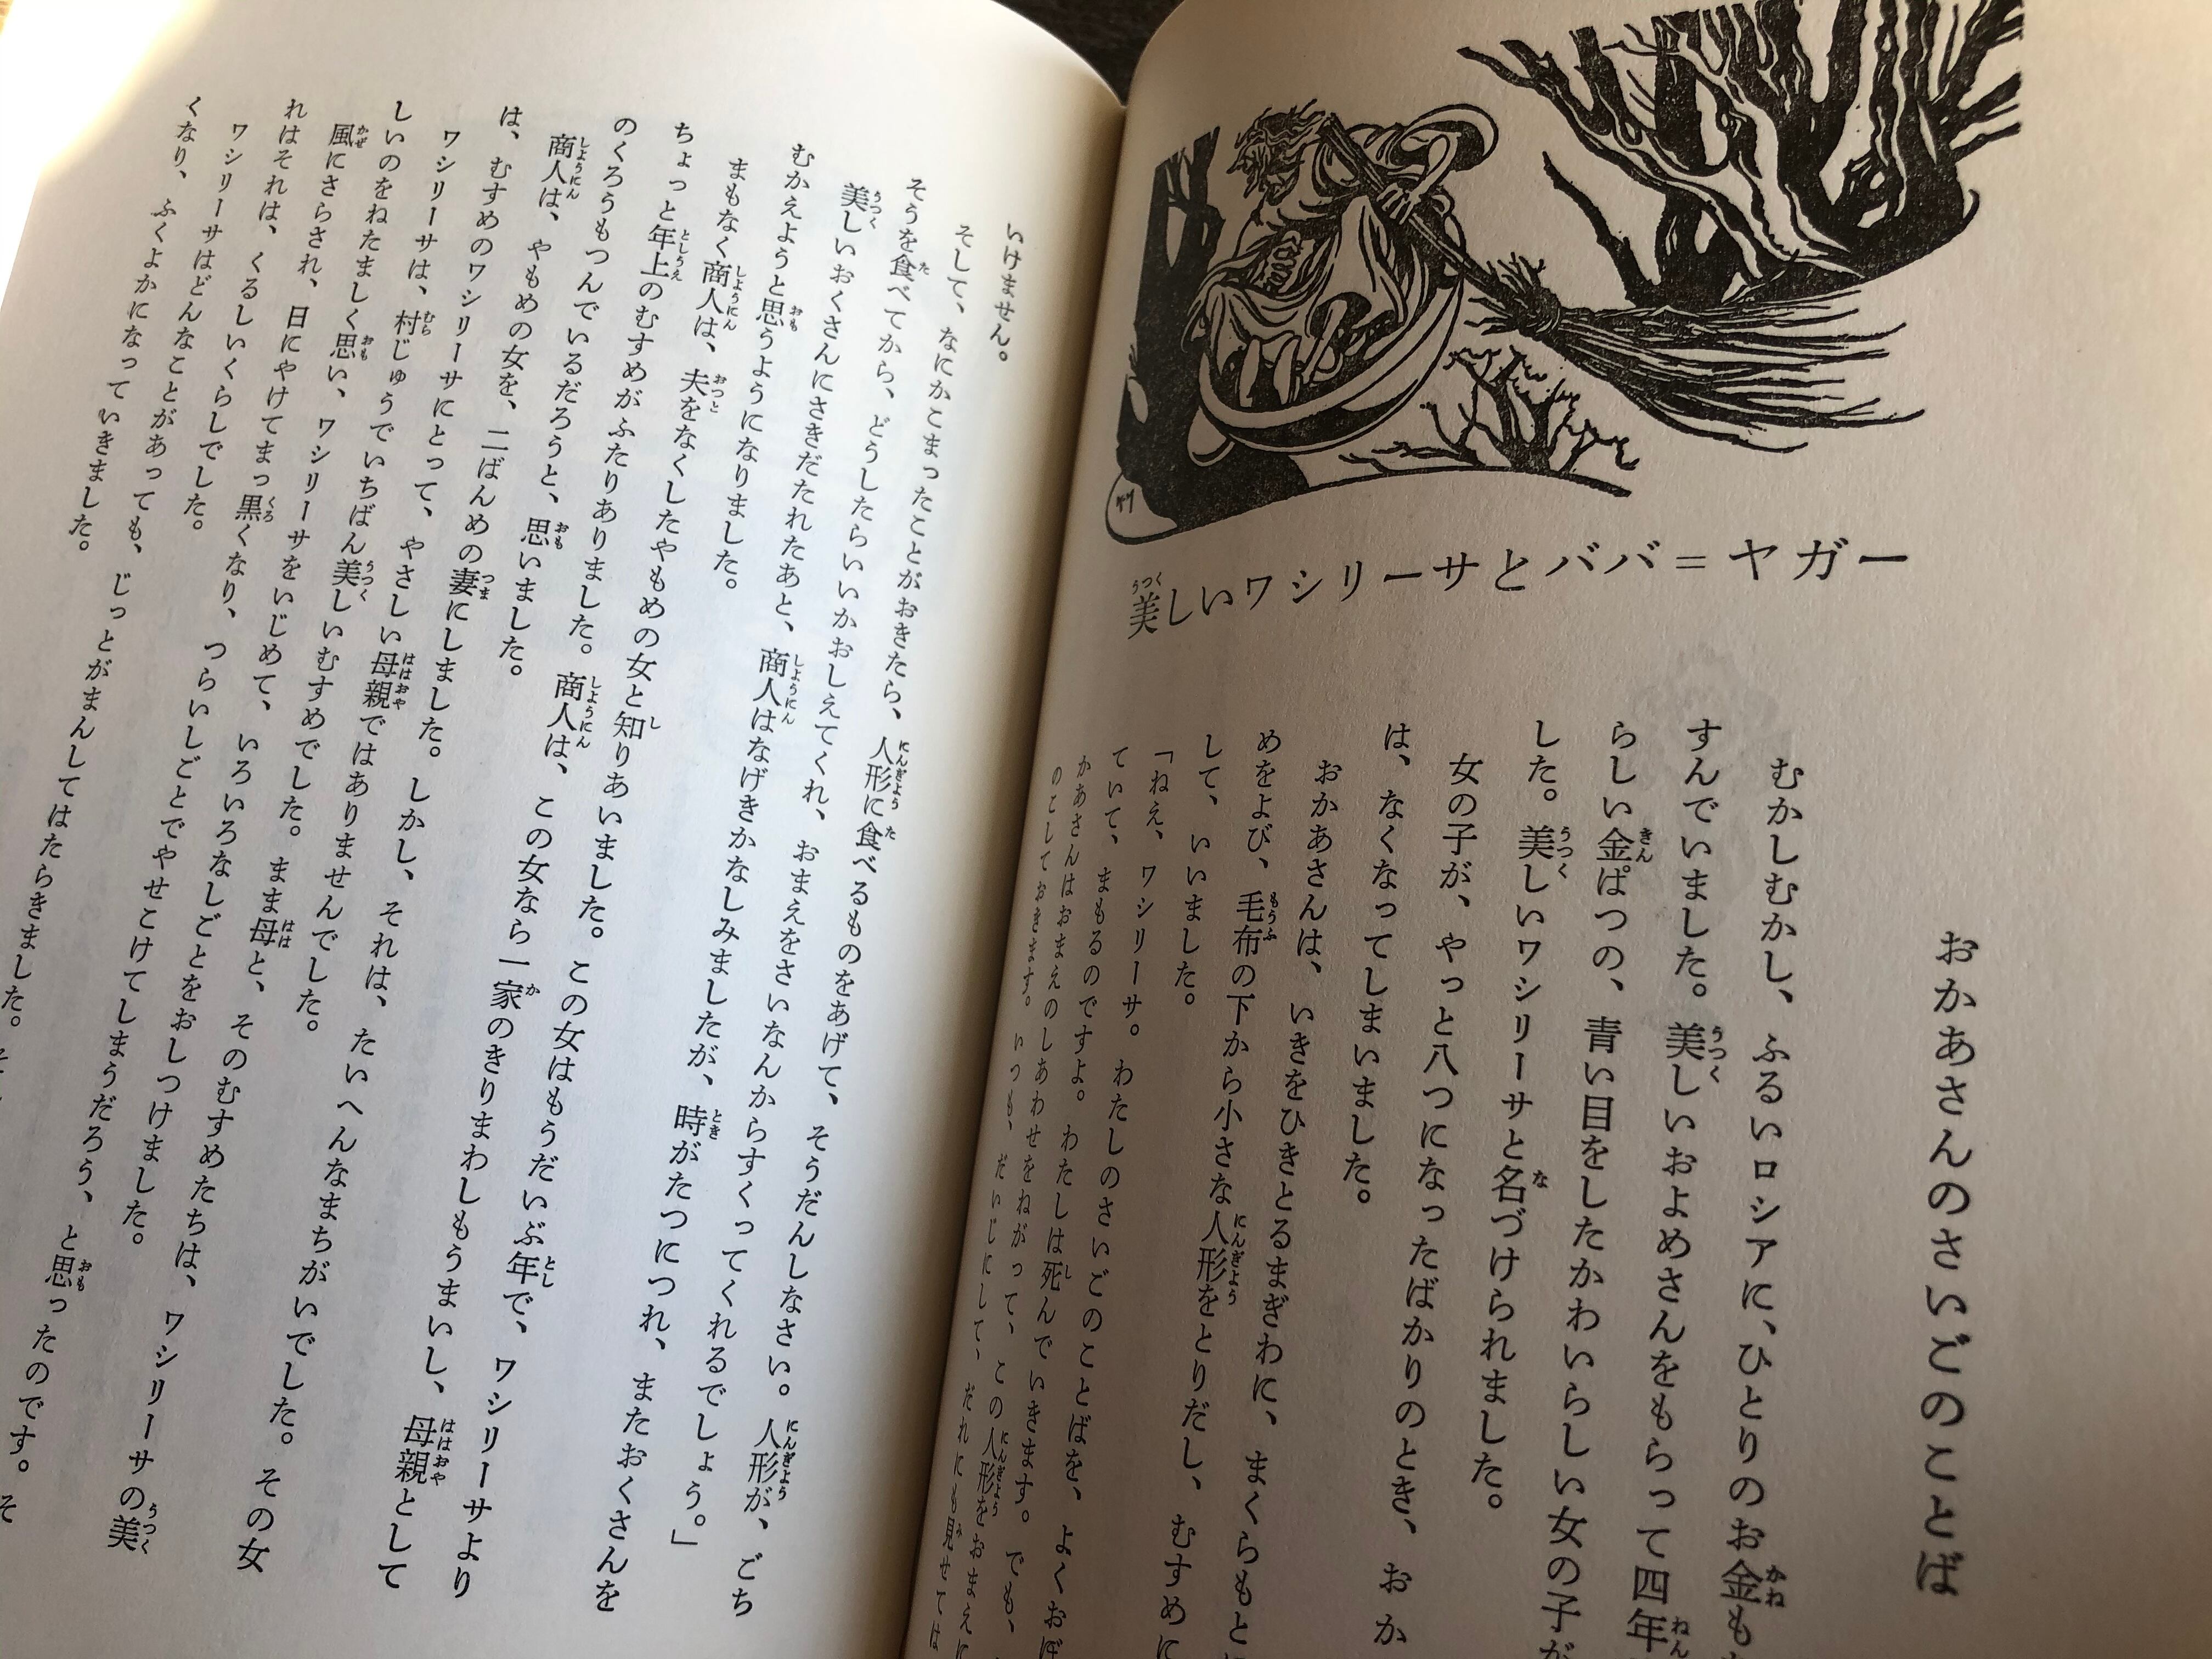 美しいワシリーサとババ=ヤガー
おかあさんのさいごのことば
むかしむかし、ふるいロシアに、ひとりのお金も
すんでいました。美しいおよめさんをもらって四年
らしい金ぱつの、青い目をしたかわいらしい女の子が
した。美しいワシリーサと名づけられました。
女の子が、やっと八つになったばかりのとき、おか
は、なくなってしまいました。
おかあさんは、いきをひきとるまぎわに、まくらもとに
めをよび、毛布の下から小さな人形をとりだし、むすめに
して、いいました。
「ねえ、ワシリーサ。わたしのさいごのことばを、よくおぼ
ていて、まもるのですよ。わたしは死んでいきます。でも、
かあさんはおまえのしあわせをねがって、この人形をおまえに
のこしておきます。いつも、だいじにして、だれにも見せては
いけません。
そして、なにかこまったことがおきたら、人形に食べるものをあげて、そうだんしなさい。人形が、ごち
そうを食べてから、どうしたらいいかおしえてくれ、おまえをさいなんからすくってくれるでしょう。」
美しいおくさんにさきだたれたあと、商人はなげきかなしみましたが、時がたつにつれ、またおくさんを
むかえようと思うようになりました。
まもなく商人は、夫をなくしたやもめの女と知りあいました。この女はもうだいぶ年で、ワシリーサより
ちょっと年上のむすめがふたりありました。商人は、この女なら一家のきりまわしもうまいし、母親として
のくろうもつんでいるだろうと、思いました。
商人は、やもめの女を、二ばんめの妻にしました。しかし、それは、たいへんなまちがいでした。その女
は、むすめのワシリーサにとって、やさしい母親ではありませんでした。
ワシリーサは、村じゅうでいちばん美しいむすめでした。まま母と、そのむすめたちは、ワシリーサの美
しいのをねたましく思い、ワシリーサをいじめて、いろいろなしごとをおしつけました。
風にさらされ、日にやけてまっ黒くなり、つらいしごとでやせこけてしまうだろう、と思ったのです。そ
れはそれは、くるしいくらしでした。
ワシリーサはどんなことがあっても、じっとがまんしてはたらきました。
くなり、ふくよかになっていきました。